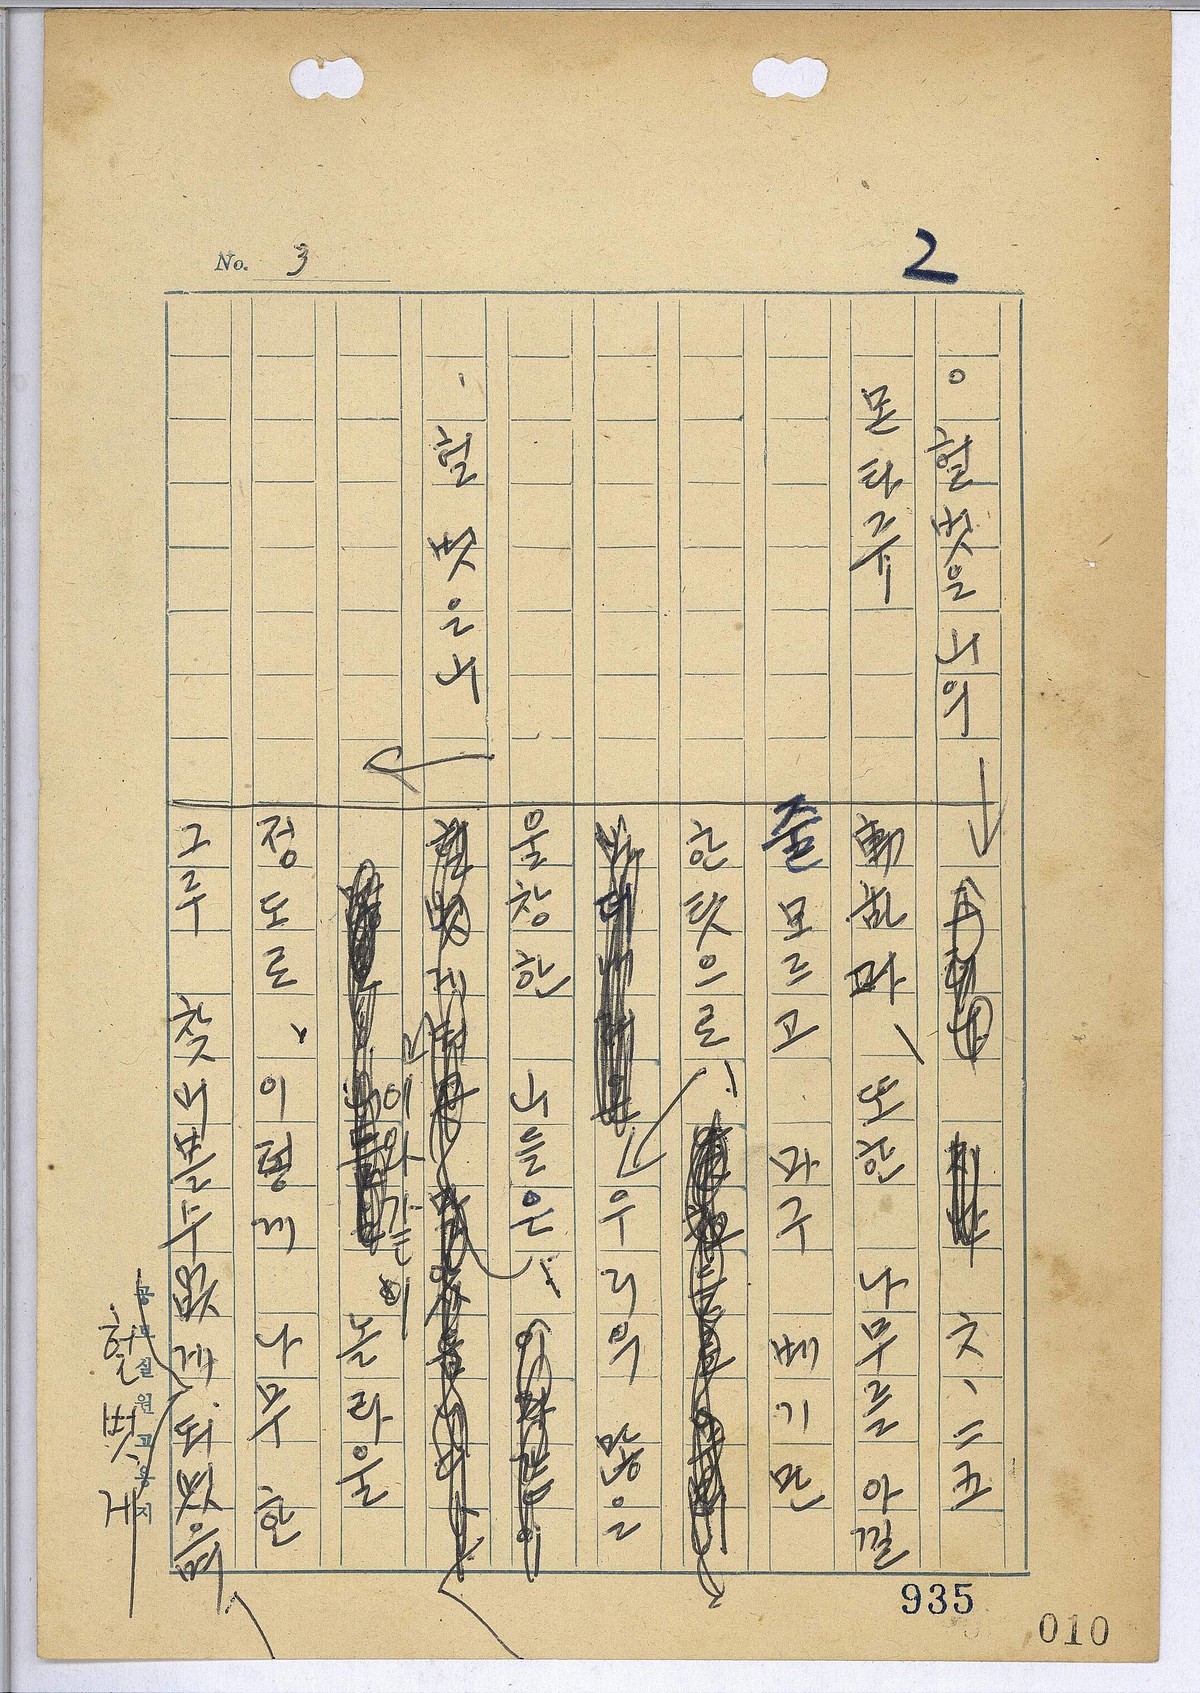 No. 3
2
ㅇ 헐벗은 山의
몬타쥬
· 헐벗은 山
六、二五
動乱과、 또한 나무를 아낄
줄 모르고 마구 베기만
한 탓으로、
우리의 많은
울창한 山들은、
놀라울
정도로、 이렇게 나무 한
그루 찾어볼 수 없게 되었으며
헐벗게
공보실원고용지
935
010